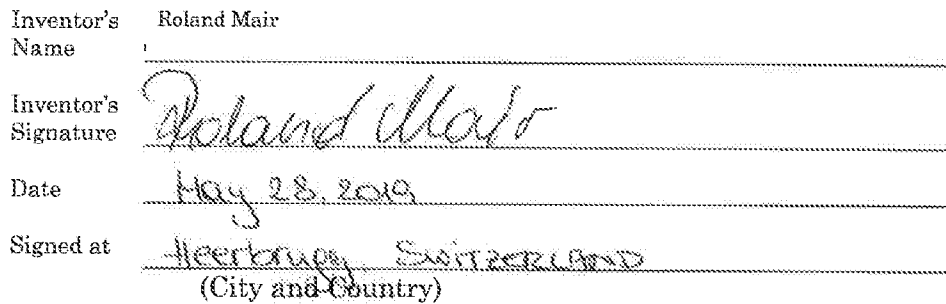 Inventor's Name Roland Mair
Inventor's Signature Roland Mair
Date May 28, 2019
Signed at Heerbrugg, SWITZERLAND
(City and Country)